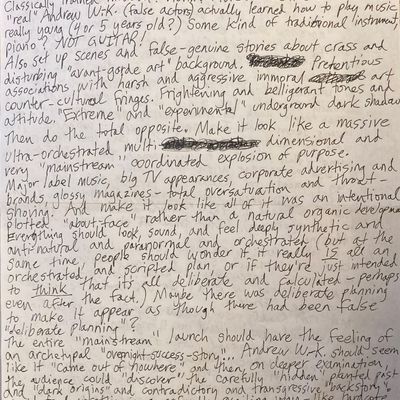 Classically trained
"real" Andrew W.K. (false actors) actually learned how to play music
really young (4 or 5 years old?) Some kind of traditional instrument,
piano? NOT GUITAR!
Also set up scenes and false-genuine stories about crass and
disturbing "avant-garde art" background. Pretentious
associations with harsh and aggressive immoral art
counter-cultural fringes. Frightening and belligerant tones and
attitude. "Extreme" and "experimental" underground dark shadow
Then do the total opposite. Make it look like a massive
ultra-orchestrated multi-dimensional and
very "mainstream" coordinated explosion of purpose.
Major label music, big TV appearances, corporate advertising and
brands, glossy magazines - total oversaturation and throat-
shoving. And make it look like all of it was an intentional
plotted "aboutface" rather than a natural organic development
Everything should look, sound, and feel deeply synthetic and
anti-natural and paranormal and orchestrated (but at the
same time, people should wonder if it really IS all an
orchestrated, and scripted plan, or if they're just intended
to think that it's all deliberate and calculated - perhaps
even after the fact.) Maybe there was deliberate planning
to make it appear as though there had been false
"deliberate planning"?
The entire "mainstream" launch should have the feeling of
an archetypal "overnight-success-story"... Andrew W.K. should seem
like it "came out of nowhere" and then, on deeper examination,
the audience could "discover" the carefully "hidden" planted past
and "dark origins" and contradictory and transgressive "backstory".
like hardcore